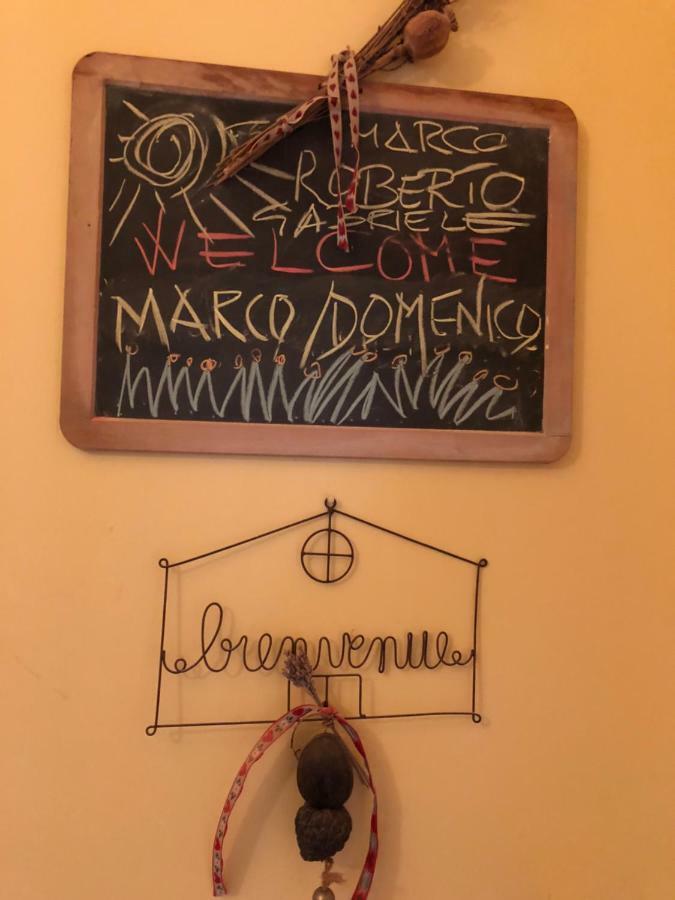 MARCO
ROBERTO
GABRIELE
WELCOME
MARCO/DOMENICO
bienvenue